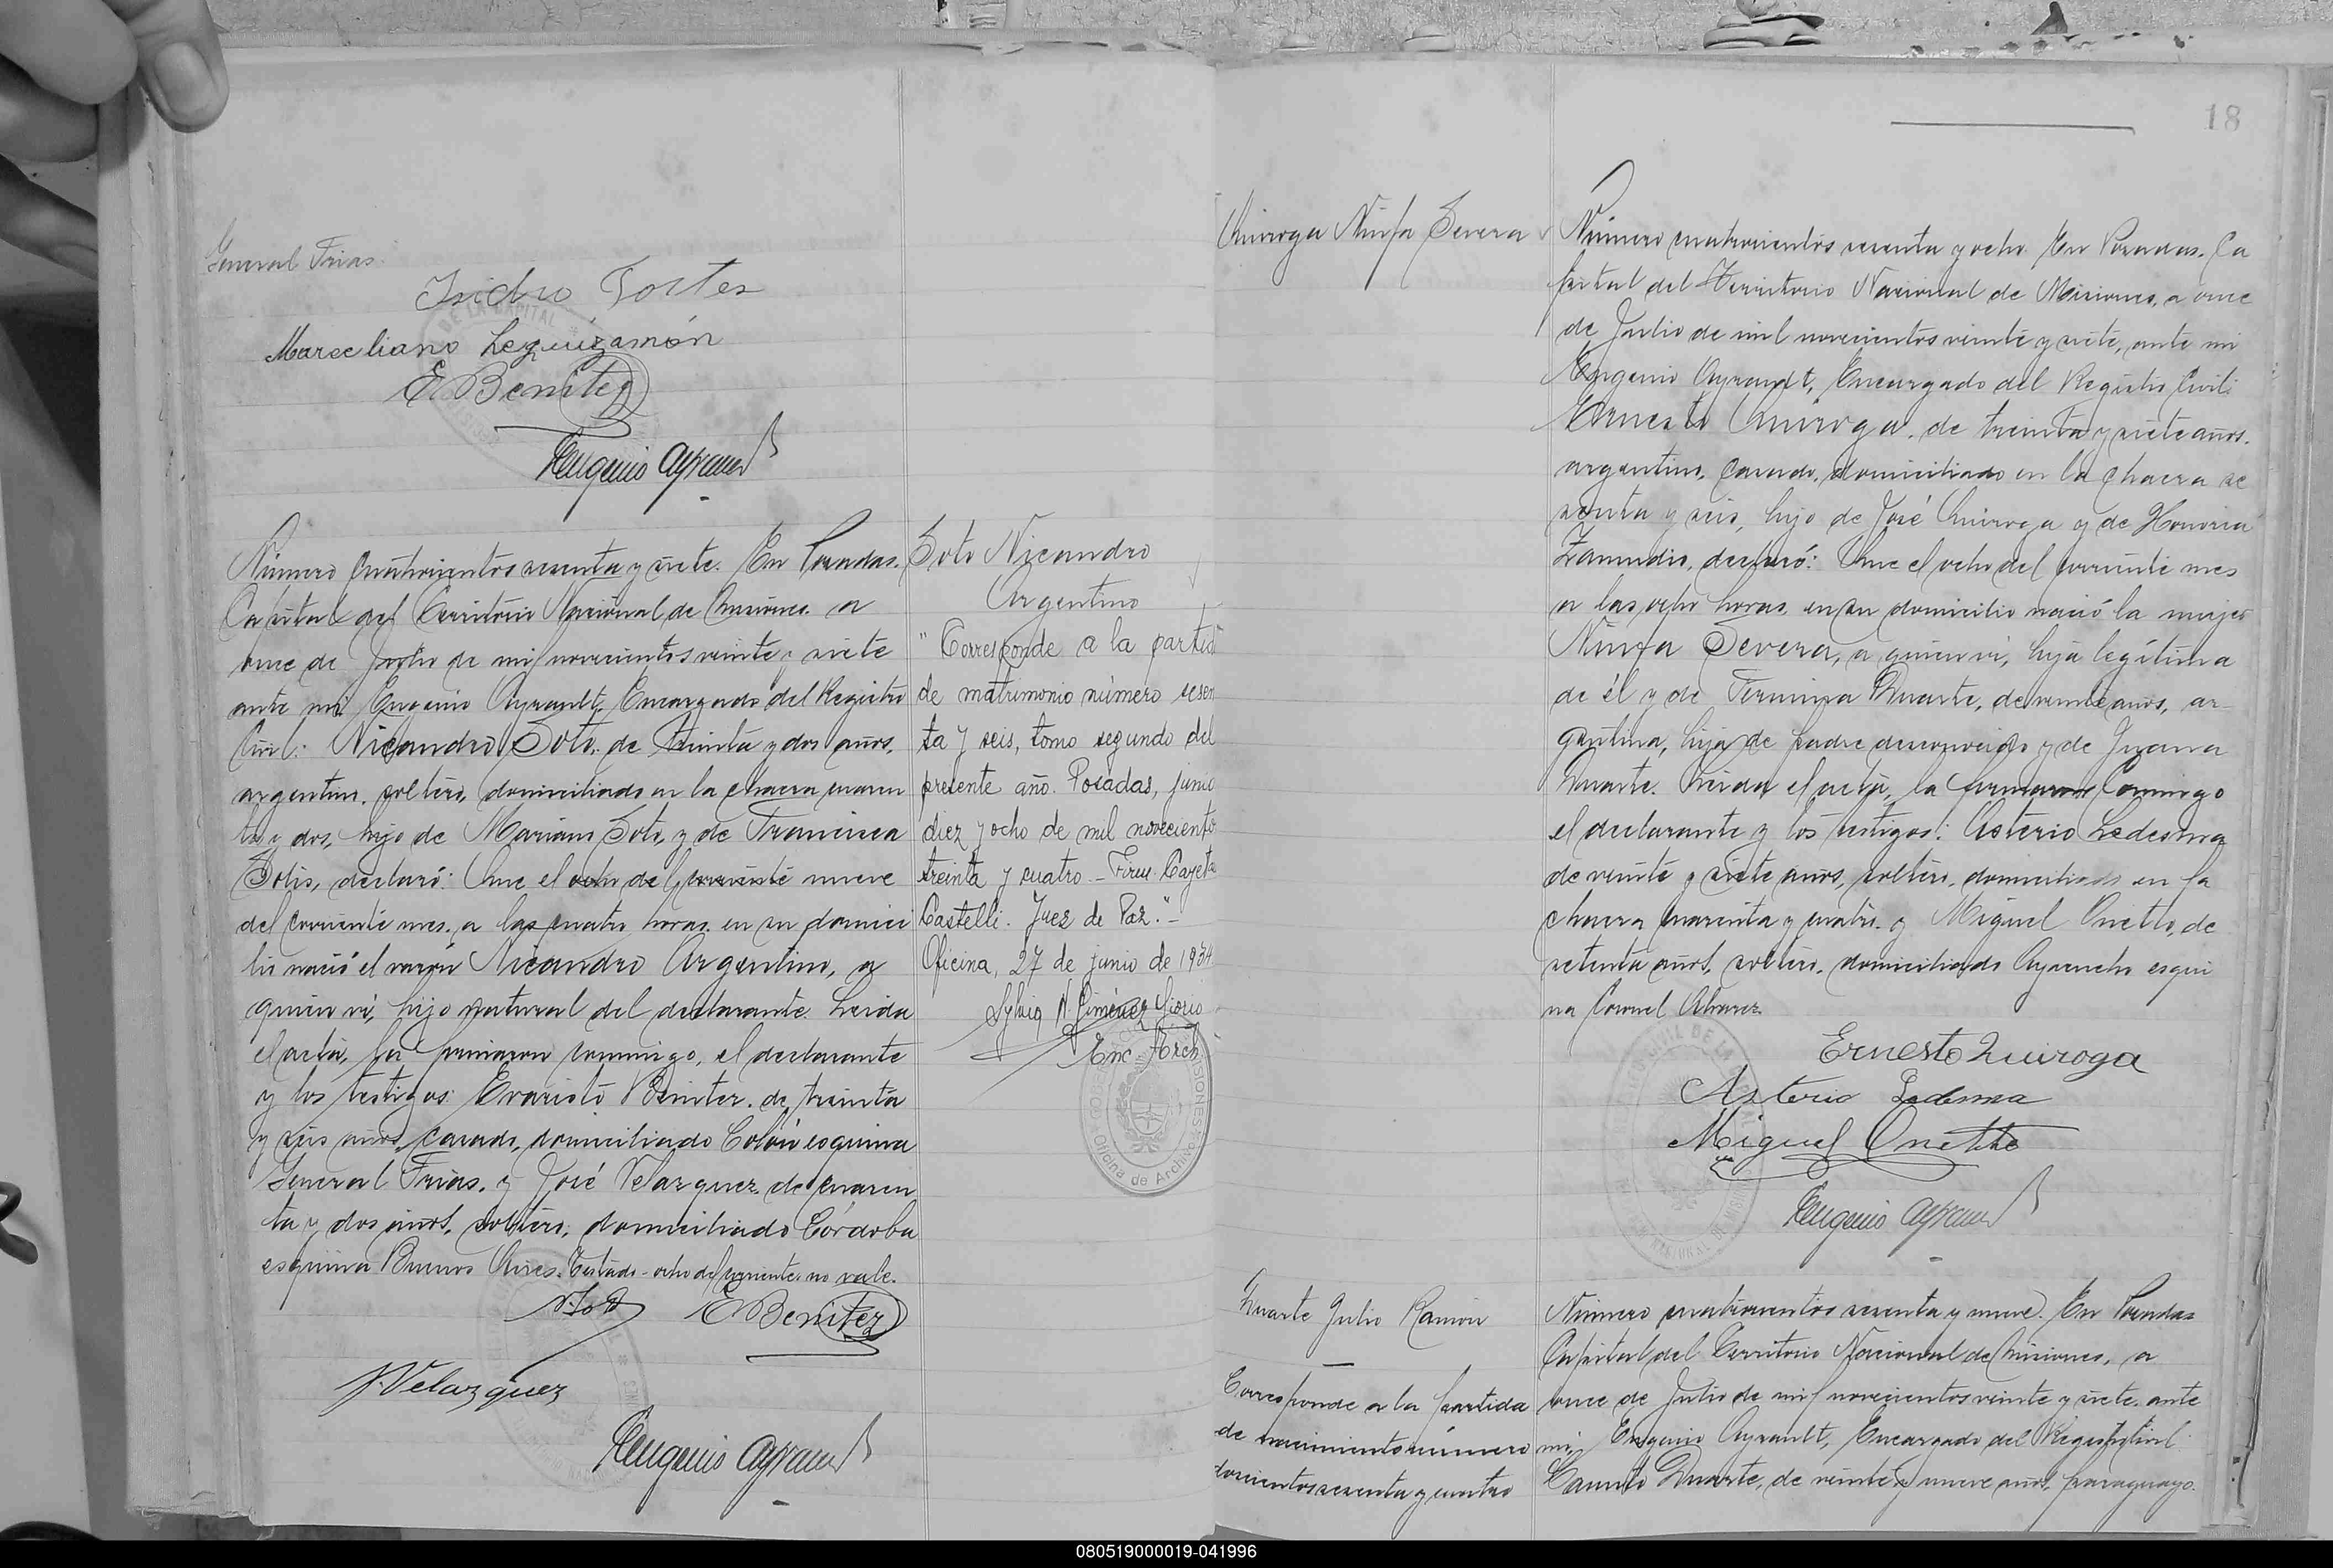 General Frias.
Isidro Fortes
Marceliano Leguizamón
E Benitez
Eugenio Ayrault
Número cuatrocientos sesenta y siete. En Posadas.
Capital del Territorio Nacional de Misiones. a
once de Julio de mil novecientos veinte y siete
ante mi Eugenio Ayrault, Encargado del Registro
Civil: Nicandro Soto, de treinta y dos años,
argentino, soltero, domiciliado en la chacra cuaren
ta y dos, hijo de Mariano Soto, y de Francisca
Solis, declaró: Que el ocho del corriente nueve
del corriente mes, a las cuatro horas en su domici
lio nació el varón Nicandro Argentino, a
quien ví, hijo natural del declarante. Leida
el acta, la firmaron conmigo, el declarante
y los testigos: Evaristo Benitez. de treinta
y seis años, casado, domiciliado Colón esquina
General Frias. y José Velazquez de cuaren
ta y dos años, soltero, domiciliado Córdoba
esquina Buenos Aires. Testado - ocho del corriente: no vale.
N. Soto E Benitez
J. Velazquez
Eugenio Ayrault
Soto Nicandro
Argentino
"Corresponde a la partid
de matrimonio número sesen
ta y seis, tomo segundo del
presente año. Posadas, junio
diez y ocho de mil noveciento
treinta y cuatro. - Firm. Cayeta
Castelli. Juez de Paz." -
Oficina, 27 de junio de 1934
Sylvia N. Giménez Giorio
Enc. Arch.
Oficina de Archivo
18
Quiroga Ninfa Severa
Número cuatrocientos sesenta y ocho. En Posadas. Ca
pital del Territorio Nacional de Misiones, a once
de Julio de mil novecientos veinte y siete, ante mi
Eugenio Ayrault, Encargado del Registro Civil:
Ernesto Quiroga, de treinta y siete años.
argentino, casado, domiciliado en la chacra se
senta y seis, hijo de José Quiroga y de Honoria
Zamudio, declaró: Que el ocho del corriente mes
a las ocho horas, en su domicilio nació la mujer
Ninfa Severa, a quien vi, hija legítima
de él y de Fermina Duarte, de veinte años, ar-
gentina, hija de padre desconocido y de Juana
Duarte. Leida el acta, la firmaron conmigo
el declarante y los testigos: Asterio Ledesma
de veinte y siete años, soltero, domiciliado en la
chacra cuarenta y cuatro. y Miguel Onetto, de
setenta años, soltero, domiciliado Ayacucho esqui
na Coronel Alvarez
Ernesto Quiroga
Asterio Ledesma
Miguel Onetto
Eugenio Ayrault
Duarte Julio Ramón
Corresponde a la partida
de nacimiento número
doscientos sesenta y cuatro
Número cuatrocientos sesenta y nueve. En Posadas
Capital del Territorio Nacional de Misiones, a
once de Julio de mil novecientos veinte y siete, ante
mi, Eugenio Ayrault, Encargado del Registro Civil
Camilo Duarte, de veinte y nueve años, paraguayo.
080519000019-041996